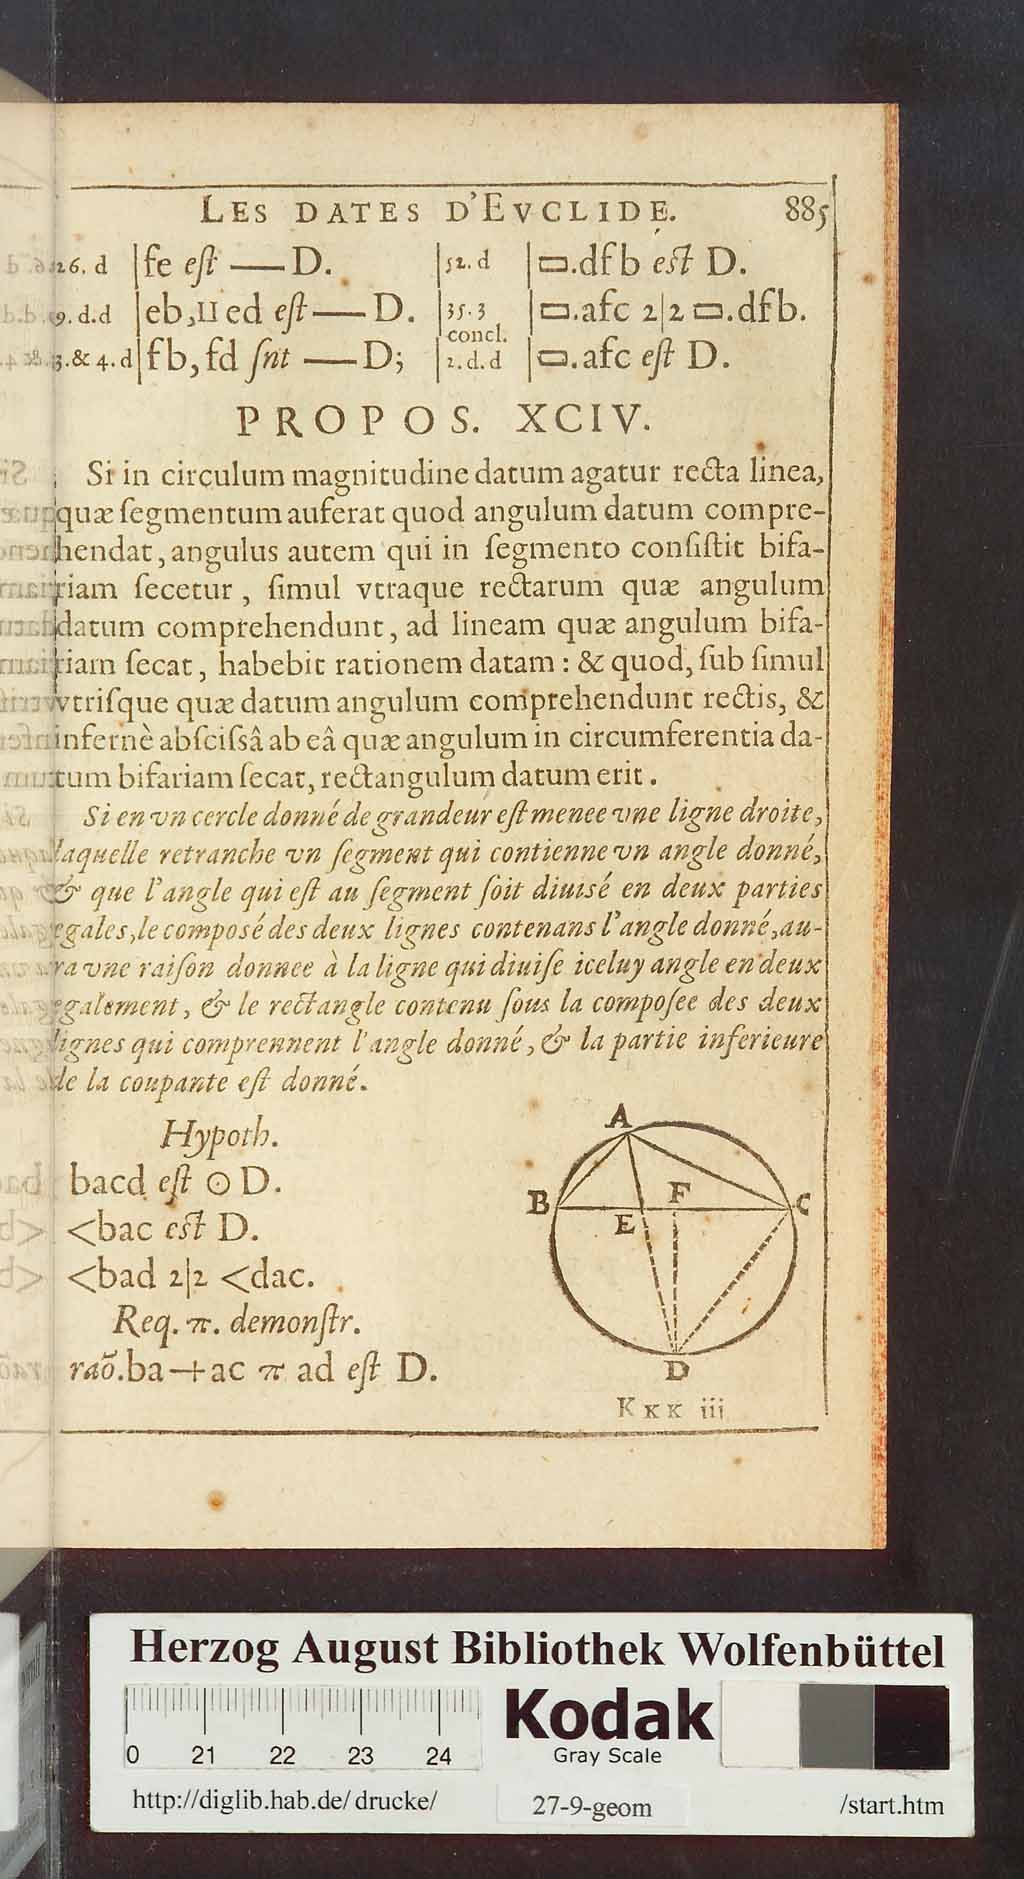 LES DATES D'EVCLIDE. 885
26. d |fe est — D. |52. d |▭.dfb est D.
9. d.d |eb,II ed est — D. |35.3 |▭.afc 2|2 ▭.dfb.
concl.
3.& 4. d|fb, fd snt — D; |2.d.d |▭.afc est D.
PROPOS. XCIV.
Si in circulum magnitudine datum agatur recta linea,
quæ ſegmentum auferat quod angulum datum compre-
hendat, angulus autem qui in ſegmento conſiſtit bifa-
riam ſecetur, ſimul vtraque rectarum quæ angulum
datum comprehendunt, ad lineam quæ angulum bifa-
riam ſecat, habebit rationem datam : & quod, ſub ſimul
vtriſque quæ datum angulum comprehendunt rectis, &
infernè abſciſsâ ab eâ quæ angulum in circumferentia da-
tum bifariam ſecat, rectangulum datum erit.
Si en vn cercle donné de grandeur eſt menee vne ligne droite,
laquelle retranche vn ſegment qui contienne vn angle donné,
& que l'angle qui eſt au ſegment ſoit diuisé en deux parties
egales, le composé des deux lignes contenans l'angle donné, au-
ra vne raiſon donnee à la ligne qui diuiſe iceluy angle en deux
egalement, & le rectangle contenu ſous la compoſee des deux
lignes qui comprennent l'angle donné, & la partie inferieure
de la coupante eſt donné.
Hypoth.
bacd eſt ⊙ D.
<bac eſt D.
<bad 2|2 <dac.
Req. π. demonſtr.
raõ.ba+ac π ad eſt D.
A
B
F
C
E
D
Kkk iii
Herzog August Bibliothek Wolfenbüttel
Kodak
Gray Scale
0 21 22 23 24
http://diglib.hab.de/drucke/ 27-9-geom /start.htm